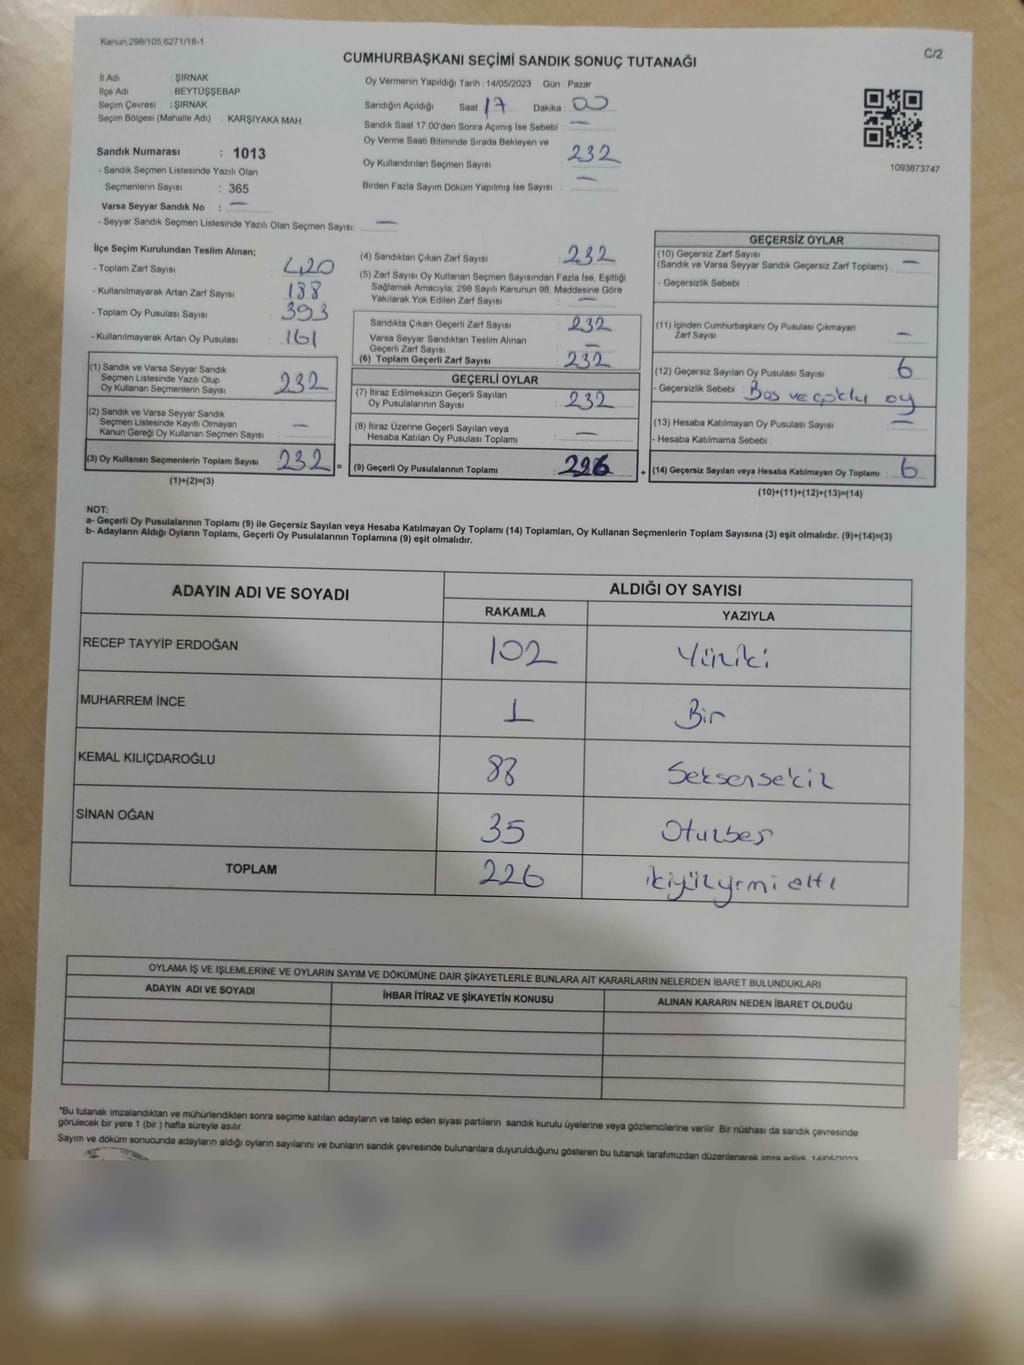 Kanun,298/105,6271/18-1
C/2
CUMHURBAŞKANI SEÇİMİ SANDIK SONUÇ TUTANAĞI
İl Adı : ŞIRNAK
İlçe Adı : BEYTÜŞŞEBAP
Seçim Çevresi : ŞIRNAK
Seçim Bölgesi (Mahalle Adı) : KARŞIYAKA MAH.
Sandık Numarası : 1013
- Sandık Seçmen Listesinde Yazılı Olan
Seçmenlerin Sayısı : 365
Varsa Seyyar Sandık No : —
- Seyyar Sandık Seçmen Listesinde Yazılı Olan Seçmen Sayısı: —
Oy Vermenin Yapıldığı Tarih : 14/05/2023 Gün : Pazar
Sandığın Açıldığı Saat 17 Dakika : 00
Sandık Saat 17.00'den Sonra Açılmış İse Sebebi : —
Oy Verme Saati Bitiminde Sırada Bekleyen ve
Oy Kullandırılan Seçmen Sayısı 232
Birden Fazla Sayım Döküm Yapılmış İse Sayısı : —
1093873747
İlçe Seçim Kurulundan Teslim Alınan;
- Toplam Zarf Sayısı : 420
- Kullanılmayarak Artan Zarf Sayısı : 188
- Toplam Oy Pusulası Sayısı : 393
- Kullanılmayarak Artan Oy Pusulası : 161
(1) Sandık ve Varsa Seyyar Sandık
Seçmen Listesinde Yazılı Olup
Oy Kullanan Seçmenlerin Sayısı : 232
(2) Sandık ve Varsa Seyyar Sandık
Seçmen Listesinde Kayıtlı Olmayan
Kanun Gereği Oy Kullanan Seçmen Sayısı : —
(3) Oy Kullanan Seçmenlerin Toplam Sayısı : 232 =
(1)+(2)=(3)
(4) Sandıktan Çıkan Zarf Sayısı : 232
(5) Zarf Sayısı Oy Kullanan Seçmen Sayısından Fazla İse, Eşitliği
Sağlamak Amacıyla, 298 Sayılı Kanunun 98. Maddesine Göre
Yakılarak Yok Edilen Zarf Sayısı : —
Sandıkta Çıkan Geçerli Zarf Sayısı : 232
Varsa Seyyar Sandıktan Teslim Alınan
Geçerli Zarf Sayısı : —
(6) Toplam Geçerli Zarf Sayısı : 232
GEÇERLİ OYLAR
(7) İtiraz Edilmeksizin Geçerli Sayılan
Oy Pusulalarının Sayısı : 232
(8) İtiraz Üzerine Geçerli Sayılan veya
Hesaba Katılan Oy Pusulası Toplamı : —
(9) Geçerli Oy Pusulalarının Toplamı : 226 +
GEÇERSİZ OYLAR
(10) Geçersiz Zarf Sayısı
(Sandık ve Varsa Seyyar Sandık Geçersiz Zarf Toplamı) : —
- Geçersizlik Sebebi :
(11) İçinden Cumhurbaşkanı Oy Pusulası Çıkmayan
Zarf Sayısı : —
(12) Geçersiz Sayılan Oy Pusulası Sayısı : 6
- Geçersizlik Sebebi : Boş ve çoklu oy
(13) Hesaba Katılmayan Oy Pusulası Sayısı : —
- Hesaba Katılmama Sebebi :
(14) Geçersiz Sayılan veya Hesaba Katılmayan Oy Toplamı : 6
(10)+(11)+(12)+(13)=(14)
NOT:
a- Geçerli Oy Pusulalarının Toplamı (9) ile Geçersiz Sayılan veya Hesaba Katılmayan Oy Toplamı (14) Toplamları, Oy Kullanan Seçmenlerin Toplam Sayısına (3) eşit olmalıdır. (9)+(14)=(3)
b- Adayların Aldığı Oyların Toplamı, Geçerli Oy Pusulalarının Toplamına (9) eşit olmalıdır.
ADAYIN ADI VE SOYADI ALDIĞI OY SAYISI
RAKAMLA YAZIYLA
RECEP TAYYİP ERDOĞAN 102 Yüziki
MUHARREM İNCE 1 Bir
KEMAL KILIÇDAROĞLU 88 Seksensekiz
SİNAN OĞAN 35 Otuzbeş
TOPLAM 226 ikiyüzyrmi altı
OYLAMA İŞ VE İŞLEMLERİNE VE OYLARIN SAYIM VE DÖKÜMÜNE DAİR ŞİKAYETLERLE BUNLARA AİT KARARLARIN NELERDEN İBARET BULUNDUKLARI
ADAYIN ADI VE SOYADI İHBAR İTİRAZ VE ŞİKAYETİN KONUSU ALINAN KARARIN NEDEN İBARET OLDUĞU
*Bu tutanak imzalandıktan ve mühürlendikten sonra seçime katılan adayların ve talep eden siyasi partilerin sandık kurulu üyelerine veya gözlemcilerine verilir. Bir nüshası da sandık çevresinde
görülecek bir yere 1 (bir) hafta süreyle asılır.
Sayım ve döküm sonucunda adayların aldığı oyların sayılarını ve bunların sandık çevresinde bulunanlara duyurulduğunu gösteren bu tutanak tarafımızdan düzenlenerek imza edildi. 14/05/2023